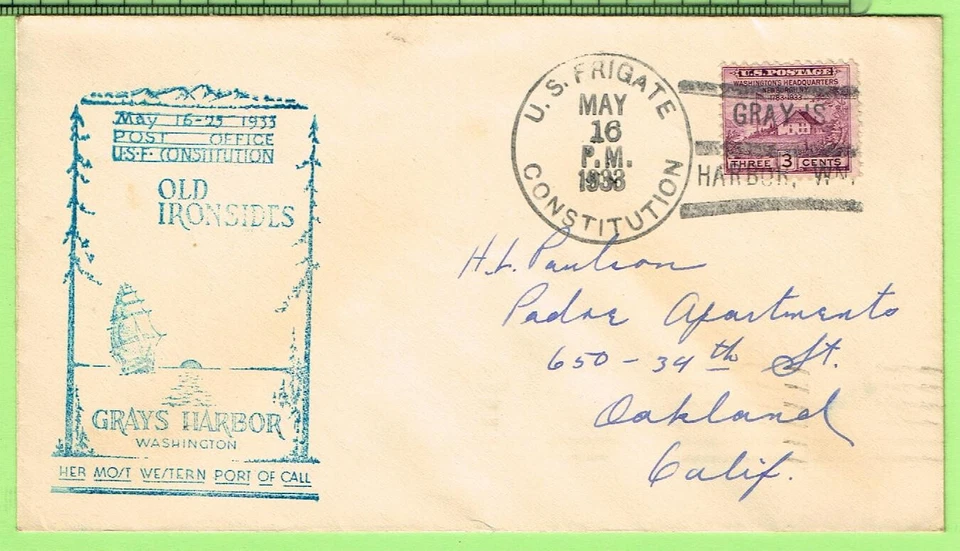 May 16-25 1933
POST OFFICE
U·S·F· CONSTITUTION
OLD
IRONSIDES
GRAYS HARBOR
WASHINGTON
HER MOST WESTERN PORT OF CALL
U.S. FRIGATE
MAY
16
P.M.
1933
CONSTITUTION
U.S. POSTAGE
WASHINGTON'S HEADQUARTERS
NEWBURGH, N.Y.
1783-1933
THREE 3 CENTS
GRAY'S
HARBOR, WN.
H. L. Paulson
Padre Apartments
650 - 34th St.
Oakland
Calif.